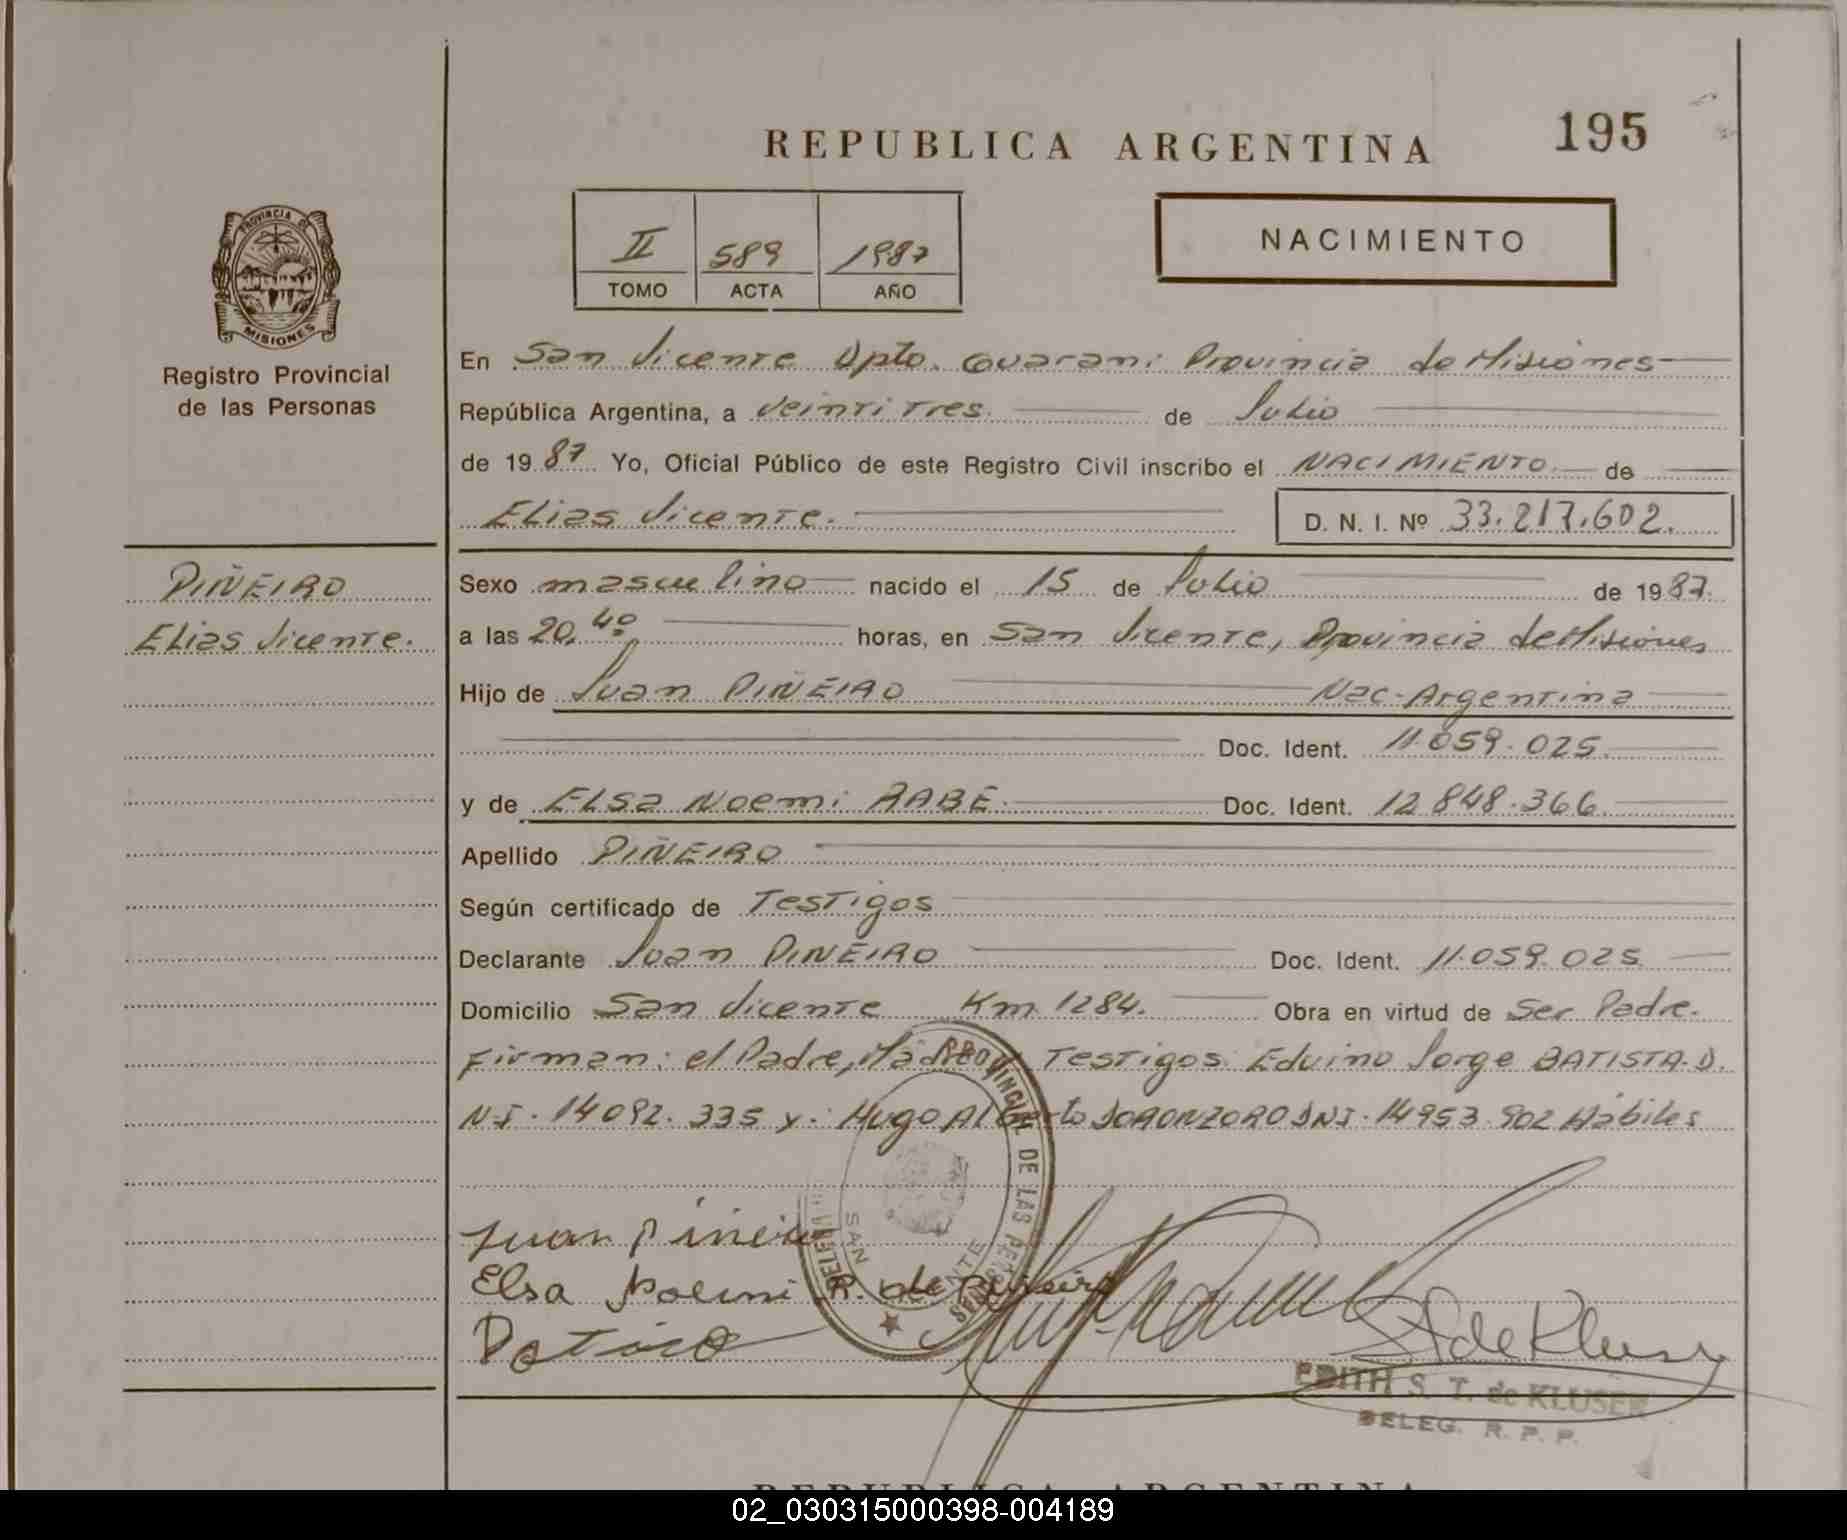 REPUBLICA ARGENTINA
195
II 589 1987
TOMO ACTA AÑO
NACIMIENTO
PROVINCIA DE
MISIONES
Registro Provincial
de las Personas
En San Vicente Dpto. Guarani Provincia de Misiones
República Argentina, a Veintitres de Julio
de 1987 Yo, Oficial Público de este Registro Civil inscribo el NACIMIENTO de
Elias Vicente.
D. N. I. Nº 33.217.602.
PIÑEIRO
Elias Vicente.
Sexo masculino nacido el 15 de Julio de 1987.
a las 20,40 horas, en San Vicente, Provincia de Misiones
Hijo de Juan PIÑEIRO Nac-Argentina
Doc. Ident. 11.059.025.
y de Elsa Noemi RABE. Doc. Ident. 12.848.366.
Apellido PIÑEIRO
Según certificado de Testigos
Declarante Juan PIÑEIRO Doc. Ident. 11.059.025
Domicilio San Vicente Km 1284. Obra en virtud de Ser Padre.
Firman: el Padre, Madre Testigos: Eduino Jorge BATISTA. D.
N.I. 14092.335 y: Hugo Alberto DORONZORO DNI. 14953.902 Hábiles
Juan Piñeiro
Elsa Noemi R. de Piñeiro
S T de Kluser
EDITH S. T. de KLUSER
DELEG. R. P. P.
REPUBLICA ARGENTINA
02_030315000398-004189